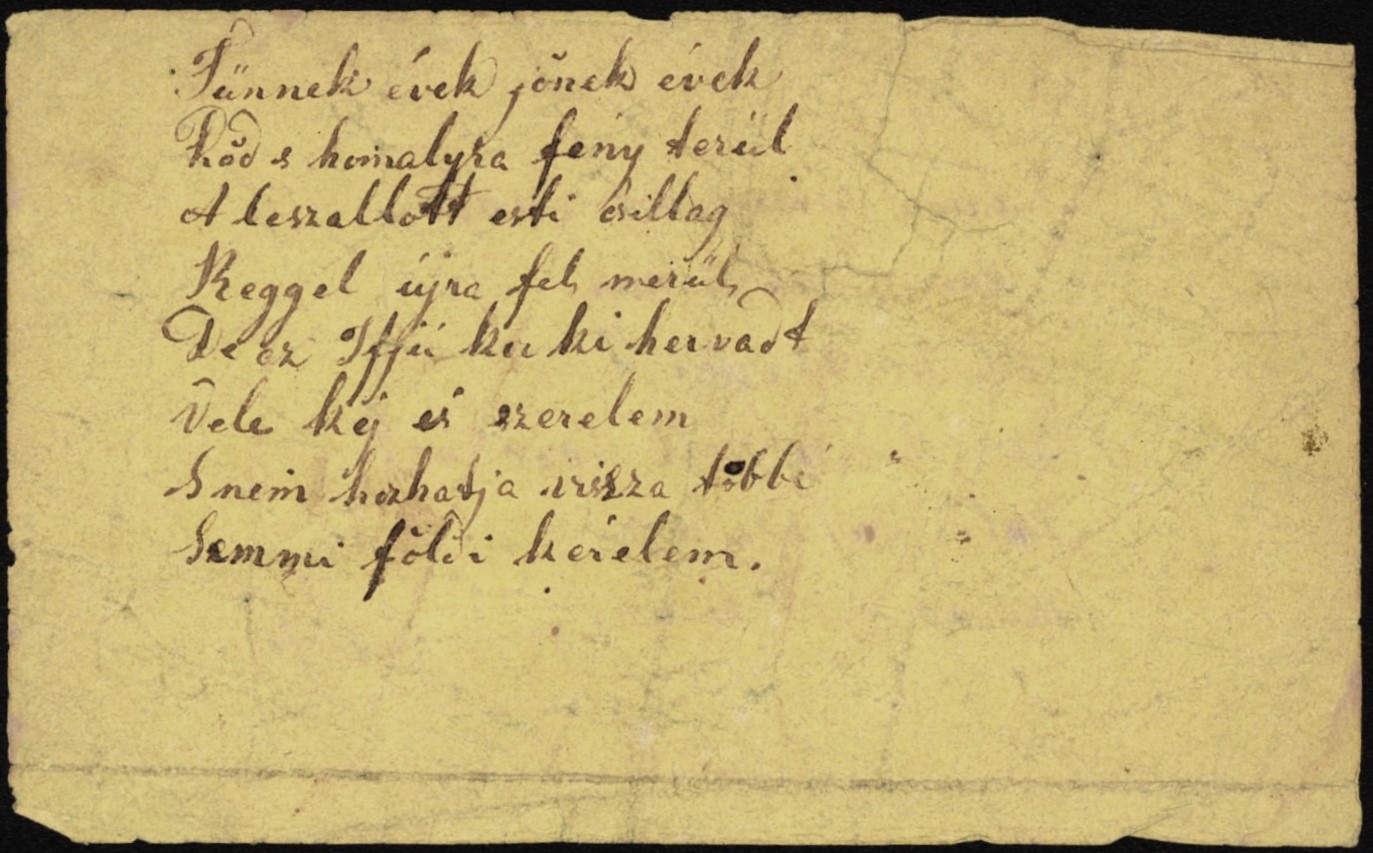 Tünnek évek jőnek évek
Kőd s homalyra feny terül
A leszallott esti csillag
Reggel újra fel merül
De az Ifjú kor ki hervadt
Vele kéj és szerelem
S nem hozhatja vissza többé
Semmi földi kérelem.